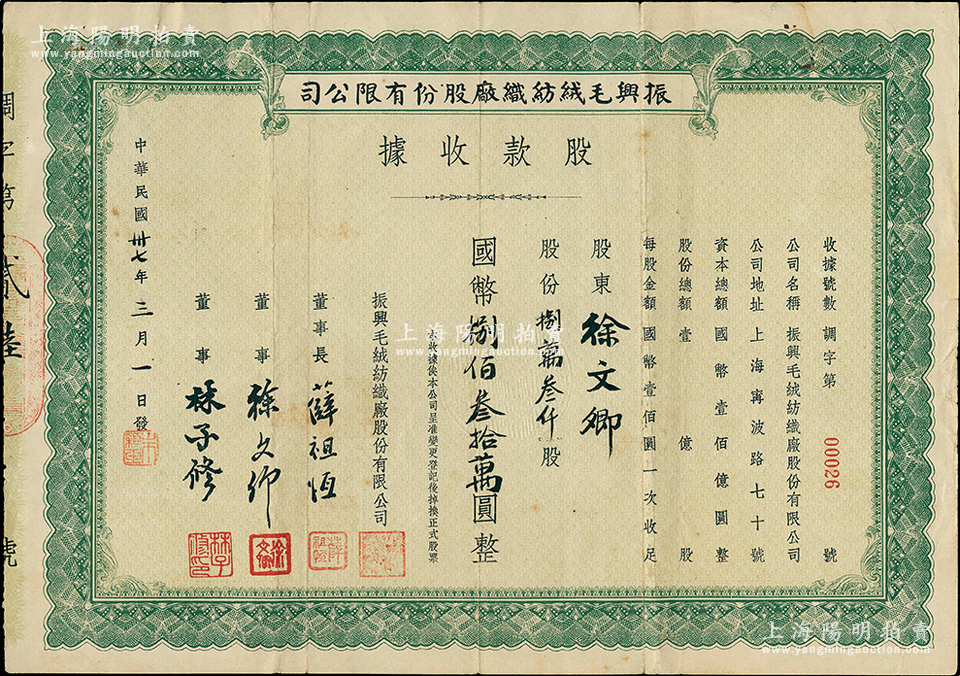 上海陽明拍賣
www.yangmingauction.com
振興毛絨紡織廠股份有限公司
股款收據
收據號數 調字第 00026 號
公司名稱 振興毛絨紡織廠股份有限公司
公司地址 上海寧波路七十號
資本總額 國幣壹佰億圓整
股份總額 壹億股
每股金額 國幣壹佰圓一次收足
股東 徐文卿
股份 捌萬叁仟股
國幣捌佰叁拾萬圓整
本收據俟本公司呈准變更登記後掉換正式股票
振興毛絨紡織廠股份有限公司
董事長 薛祖恆
董事 徐文卿
董事 林子修
中華民國卅七年三月一日發
調字第貳陸號
上海陽明拍賣
www.yangmingauction.com
上海陽明拍賣
www.yangmingauction.com